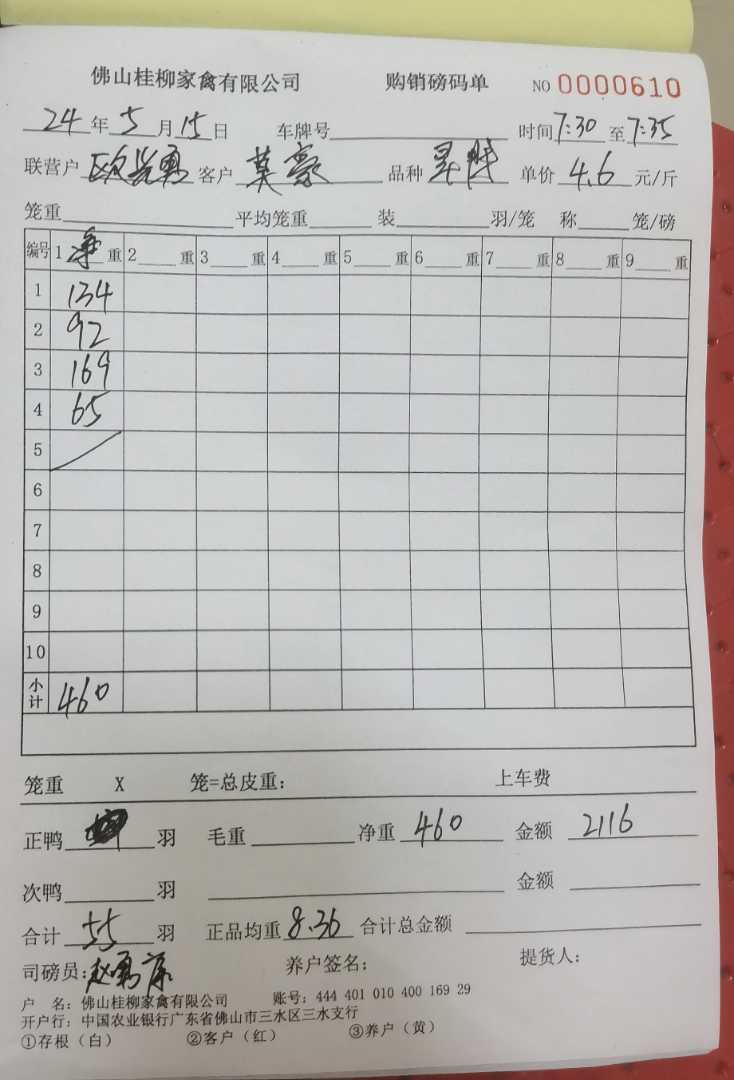 佛山桂柳家禽有限公司 购销磅码单 NO 0000610
24年5月15日 车牌号 时间7:30至7:35
联营户 欧 勇 客户 莫豪 品种 单价 4.6 元/斤
笼重 平均笼重 装 羽/笼 称 笼/磅
编号 1 净 重 2 重 3 重 4 重 5 重 6 重 7 重 8 重 9 重
1 134
2 92
3 169
4 65
5
6
7
8
9
10
小计 460
笼重 X 笼=总皮重: 上车费
正鸭 羽 毛重 净重 460 金额 2116
次鸭 羽 金额
合计 55 羽 正品均重 8.36 合计总金额
司磅员: 赵勇康 养户签名: 提货人:
户 名: 佛山桂柳家禽有限公司 账号: 444 401 010 400 169 29
开户行: 中国农业银行广东省佛山市三水区三水支行
①存根(白) ②客户(红) ③养户(黄)